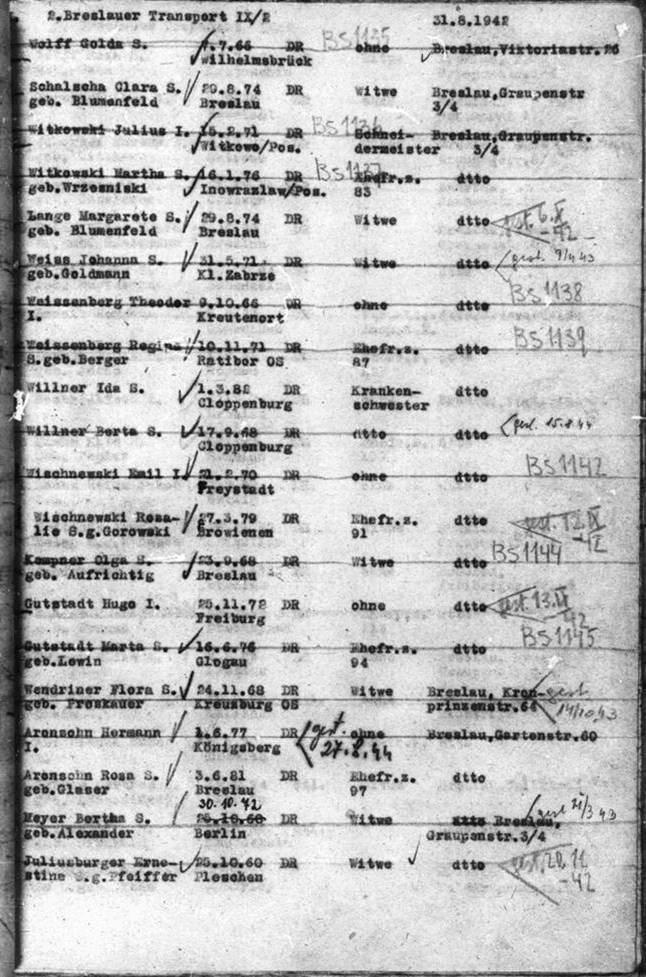 2.Breslauer Transport IX/2 31.8.1942
Wolff Golda S. .7.66 DR BS1135 ohne Breslau,Viktoriastr.26
Wilhelmsbrück
Schalscha Clara S. 29.8.74 DR Witwe Breslau,Graupenstr
geb. Blumenfeld Breslau 3/4
Witkowski Julius I. 15.2.71 DR BS1136 Schnei- Breslau,Graupenstr.
Witkowo/Pos. dermeister 3/4
Witkowski Martha S. 16.1.76 DR BS1137 Ehefr.z. dtto
geb.Wrzesniski Inowrazlaw/Pos. 83
Lange Margarete S. 29.8.74 DR Witwe dtto gest. 6.X
geb. Blumenfeld Breslau -42
Weiss Johanna S. 31.5.71 DR Witwe dtto gest. 9/4 43
geb.Goldmann Kl.Zabrze
Weissenberg Theodor 9.10.66 DR ohne dtto BS1138
I. Kreutenort
Weissenberg Regina 10.11.71 DR Ehefr.z. dtto BS1139
S.geb.Berger Ratibor OS 87
Willner Ida S. 1.3.82 DR Kranken- dtto
Cloppenburg schwester
Willner Berta S. 17.9.68 DR dtto dtto gest. 15.8.44
Cloppenburg
Wischnewski Emil I. 21.2.70 DR ohne dtto BS1142
Freystadt
Wischnewski Rosa- 27.3.79 DR Ehefr.z. dtto gest. 12.IX
lie S.g.Gorowski Browienen 91 -42
Kempner Olga S. 23.9.68 DR Witwe dtto BS1144
geb. Aufrichtig Breslau
Gutstadt Hugo I. 25.11.72 DR ohne dtto gest. 13.IX
Freiburg 42
Gutstadt Marta S. 16.6.76 DR Ehefr.z. dtto BS1145
geb.Lewin Glogau 94
Wendriner Flora S. 24.11.68 DR Witwe Breslau, Kron- gest
geb. Proskauer Kreuzburg OS prinzenstr.64 14/10 43
Aronsohn Hermann 1.6.77 DR gest. ohne Breslau,Gartenstr.60
I. Königsberg 27.8.44
Aronsohn Rosa S. 3.6.81 DR Ehefr.z. dtto
geb.Glaser Breslau 97
30.10.72
Meyer Bertha S. 25.10.60 DR Witwe dtto Breslau, gest 21/3 43
geb.Alexander Berlin Graupenstr.3/4
Juliusburger Erne- 25.10.60 DR Witwe dtto gest. 20.11
stine S.g.Pfeiffer Pleschen -42